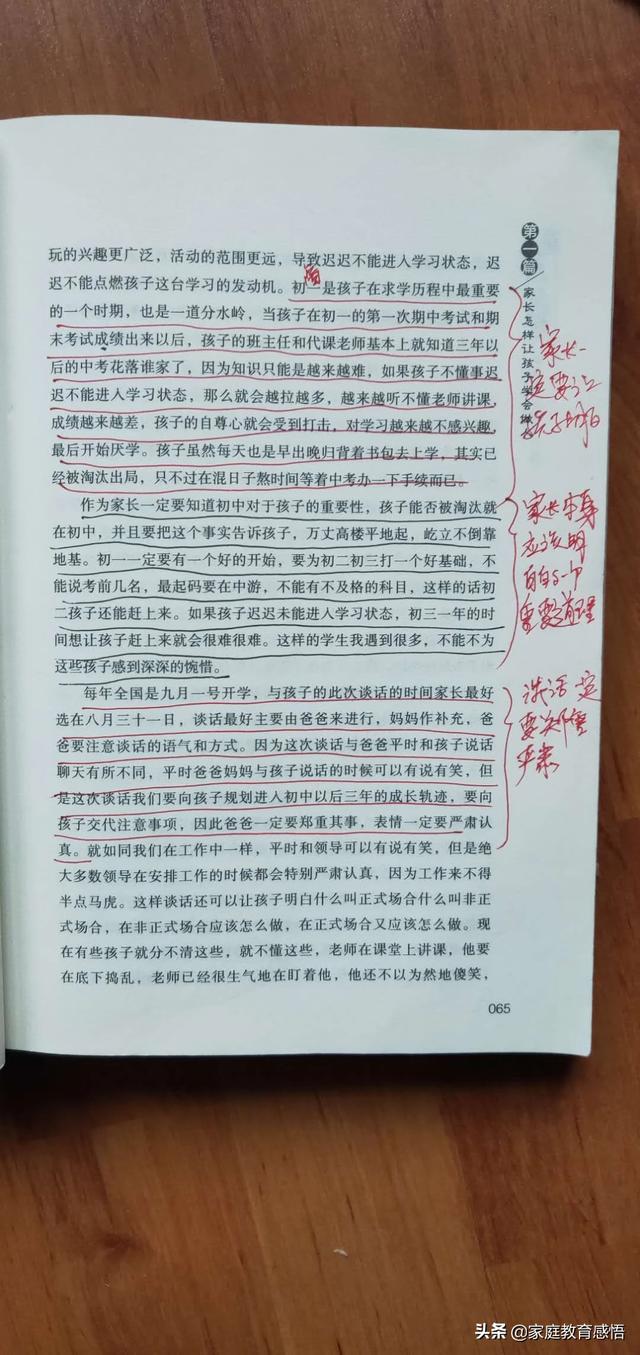 玩的兴趣更广泛，活动的范围更远，导致迟迟不能进入学习状态，迟
迟不能点燃孩子这台学习的发动机。初一是孩子在求学历程中最重要
的一个时期，也是一道分水岭，当孩子在初一的第一次期中考试和期
末考试成绩出来以后，孩子的班主任和代课老师基本上就知道三年以
后的中考花落谁家了，因为知识只能是越来越难，如果孩子不懂事迟
迟不能进入学习状态，那么就会越拉越多，越来越听不懂老师讲课，
成绩越来越差，孩子的自尊心就会受到打击，对学习越来越不感兴趣，
最后开始厌学。孩子虽然每天也是早出晚归背着书包去上学，其实已
经被淘汰出局，只不过在混日子熬时间等着中考办一下手续而已。
作为家长一定要知道初中对于孩子的重要性，孩子能否被淘汰就
在初中，并且要把这个事实告诉孩子，万丈高楼平地起，屹立不倒靠
地基。初一一定要有一个好的开始，要为初二初三打一个好基础，不
能说考前几名，最起码要在中游，不能有不及格的科目，这样的话初
二孩子还能赶上来。如果孩子迟迟未能进入学习状态，初三一年的时
间想让孩子赶上来就会很难很难。这样的学生我遇到很多，不能不为
这些孩子感到深深的惋惜。
每年全国是九月一号开学，与孩子的此次谈话的时间家长最好
选在八月三十一日，谈话最好主要由爸爸来进行，妈妈作补充，爸
爸要注意谈话的语气和方式。因为这次谈话与爸爸平时和孩子说话
聊天有所不同，平时爸爸妈妈与孩子说话的时候可以有说有笑，但
是这次谈话我们要向孩子规划进入初中以后三年的成长轨迹，要向
孩子交代注意事项，因此爸爸一定要郑重其事，表情一定要严肃认
真。就如同我们在工作中一样，平时和领导可以有说有笑，但是绝
大多数领导在安排工作的时候都会特别严肃认真，因为工作来不得
半点马虎。这样谈话还可以让孩子明白什么叫正式场合什么叫非正
式场合，在非正式场合应该怎么做，在正式场合又应该怎么做。现
在有些孩子就分不清这些，就不懂这些，老师在课堂上讲课，他要
在底下捣乱，老师已经很生气地在盯着他，他还不以为然地傻笑，
065
第一篇
家长怎样让孩子学会做
家长一
定要让
孩子明白
家长本身
应该明
白的一个
重要道理
谈话一定
要严肃
头条 @家庭教育感悟